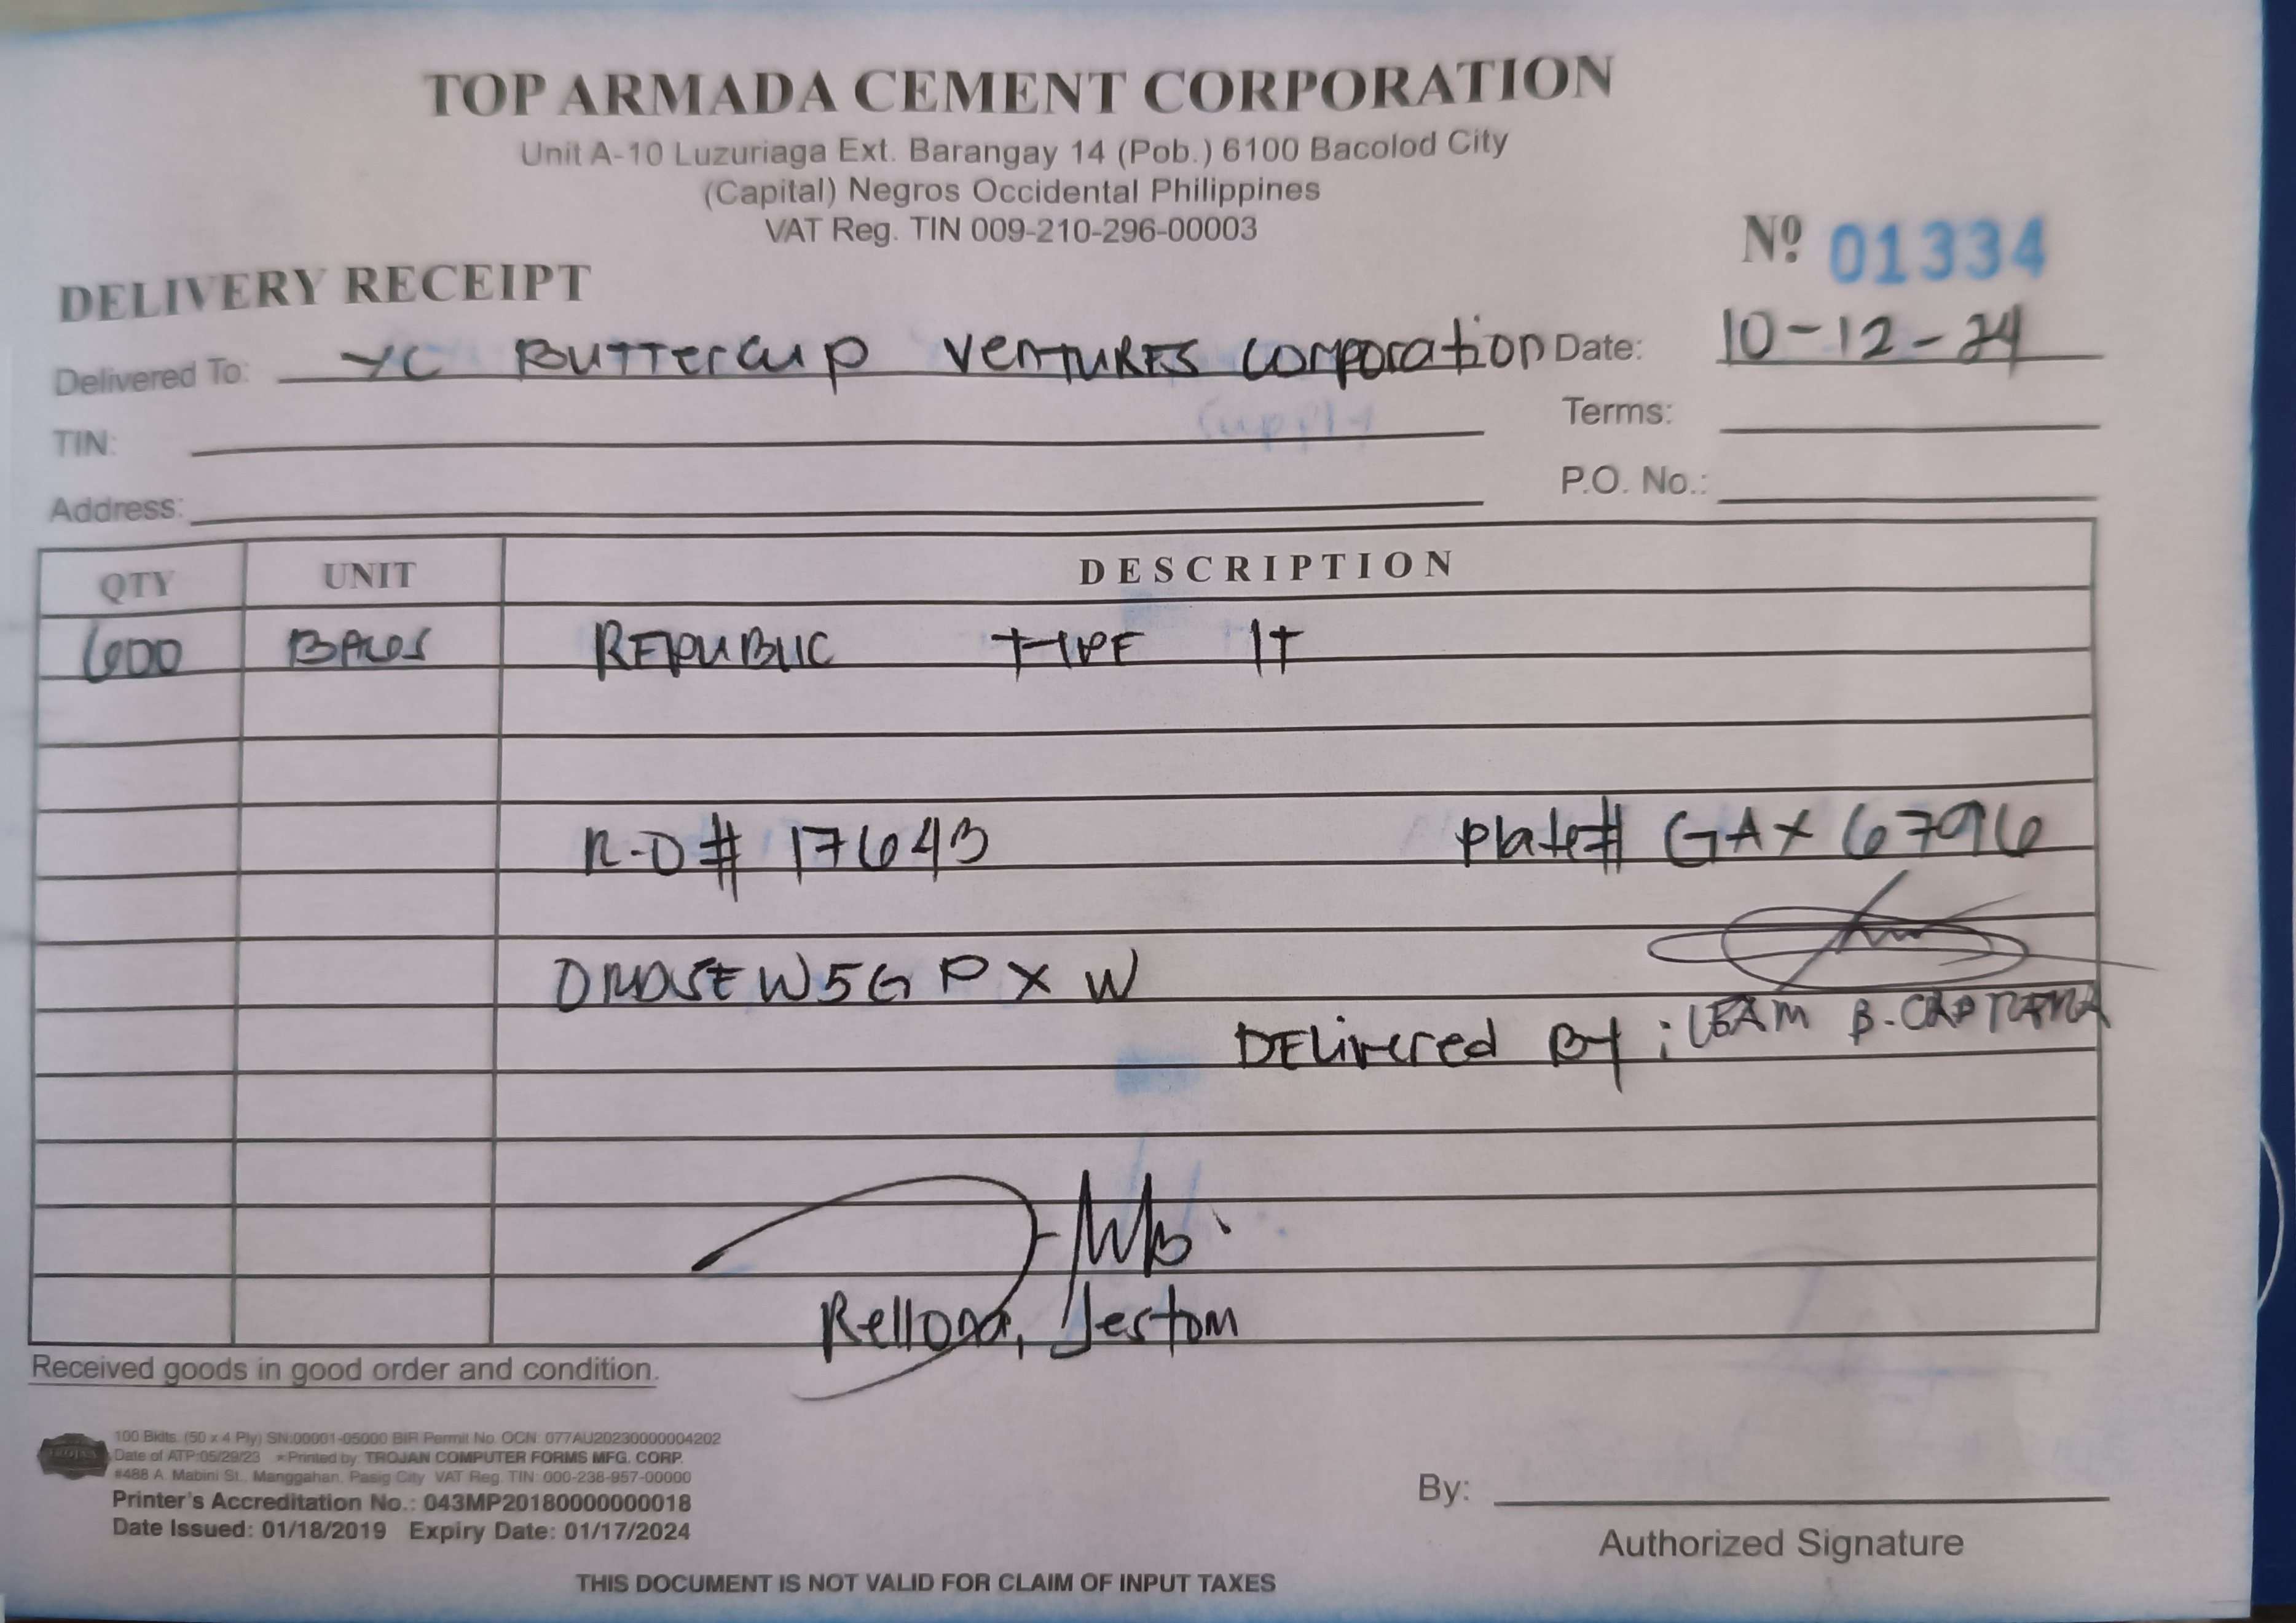 TOP ARMADA CEMENT CORPORATION
Unit A-10 Luzuriaga Ext. Barangay 14 (Pob.) 6100 Bacolod City
(Capital) Negros Occidental Philippines
VAT Reg. TIN 009-210-296-00003
Nº 01334
DELIVERY RECEIPT
Delivered To: YC BUTTERCUP VENTURES CORPORATION Date: 10-12-24
TIN: Terms:
Address: P.O. No.:
QTY UNIT DESCRIPTION
600 BAGS REPUBLIC TYPE 1T
R.O# 17643 Plate# GAX 6796
W5GPXW
DELivered By: LEAM B.
Jestom
Received goods in good order and condition.
100 Bklts. (50 x 4 Ply) SN:00001-05000 BIR Permit No. OCN: 077AU20230000004202
Date of ATP:05/29/23 *Printed by: TROJAN COMPUTER FORMS MFG. CORP.
#488 A. Mabini St., Manggahan, Pasig City VAT Reg. TIN: 000-238-957-00000
Printer's Accreditation No.: 043MP20180000000018
Date Issued: 01/18/2019 Expiry Date: 01/17/2024
By:
Authorized Signature
THIS DOCUMENT IS NOT VALID FOR CLAIM OF INPUT TAXES